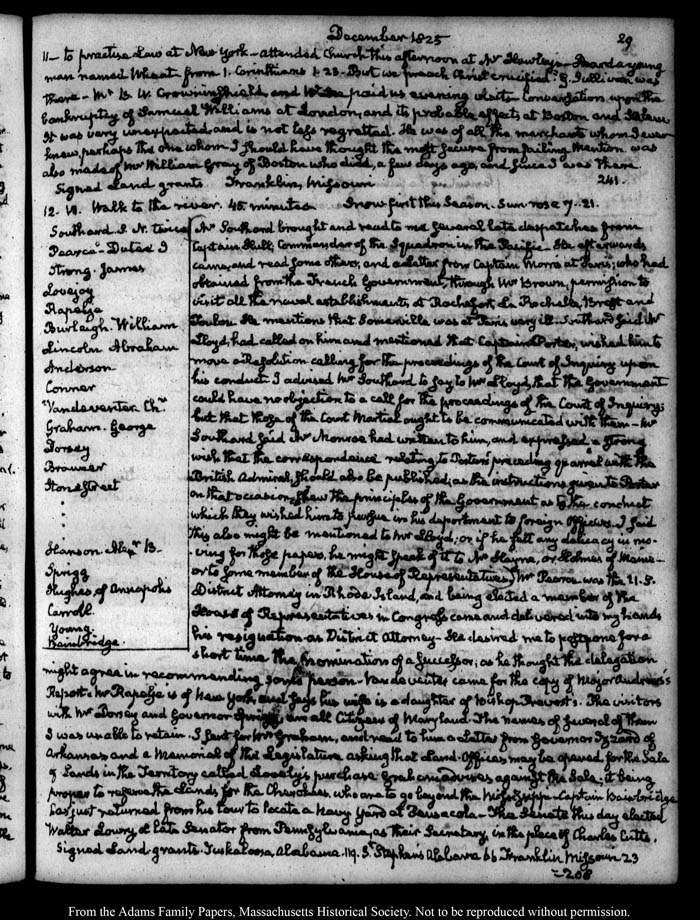 December 1825
29
11 — to practise Law at New York — attended Church this afternoon at Mr Hawley's — Heard a young
man named Wheat from 1. Corinthians 1. 23. But we preach Christ crucified. G. Sullivan was
there — Mr B. W. Crowninshield, and paid us evening visits — Conversation upon the
bankruptcy of Samuel Williams at London, and its probable effects at Boston and Salem
It was very unexpected, and is not less regretted. He was of all the merchants whom I ever
knew, perhaps the one whom I should have thought the most secure from failing. Mention was
also made of Mr William Gray of Boston who died, a few days ago, and since I was there.
Signed Land grants Franklin, Missouri 241.
12. VI. Walk to the river. 45 minutes Snow first this Season. Sun rose 7..21.
Southard. S. N. twice
Pearce — Dutee J
Strong. James
Lovejoy
Rapelje
Burleigh. William
Lincoln Abraham
Anderson
Conner
Vandeventer Chr
Graham. George
Dorsey
Brouwer
StoneStreet
Hanson. Alexr B.
Sprigg
Hughes of Annapolis
Carroll.
Young.
Bainbridge.
Mr Southard brought and read to me several late despatches from
Captain Hull, Commander of the Squadron in the Pacific — He afterwards
came, and read some others, and a Letter from Captain Morris at Paris; who had
obtained from the French Government, through Mr Brown, permission to
visit all the naval establishments, at Rochefort, La Rochelle, Brest and
Toulon. He mentions that Somerville was at Paris very ill. Southard said Mr
Lloyd, had called on him and mentioned that Captain Porter, wished him to
move a Resolution calling for the proceedings of the Court of Inquiry upon
his conduct. I advised Mr Southard to say to Mr Lloyd, that the Government
could have no objection to a call for the proceedings of the Court of Inquiry;
but that those of the Court Martial ought to be communicated with them — Mr
Southard said Mr Monroe had written to him, and expressed a strong
wish that the correspondence relating to Porter's preceding quarrel with the
British Admiral, should also be published; as the instructions given to Porter
on that occasion, shew the principles of the Government as to the conduct
which they wished him to pursue in his deportment to foreign Officers. I said
this also might be mentioned to Mr Lloyd; or if he felt any delicacy in mo-
-ving for those papers, he might speak of it to Mr Hayne, or Holmes of Maine —
or to some member of the House of Representatives. Mr Pearce was the U.S.
District Attorney in Rhode Island, and being elected a member of the
House of Representatives in Congress came and delivered into my hands
his resignation as District Attorney — He desired me to postpone for a
short time the nomination of a Successor, as he thought the delegation
might agree in recommending some person — Vandeventer came for the copy of Major Andrews's
Report. Mr Rapelje is of New York and says his wife is a daughter of Bishop Provost's. The visitors
with Mr Dorsey and Governor Sprigg, are all Citizens of Maryland. The names of several of them
I was unable to retain. I sent for Mr Graham, and read to him a Letter from Governor Izzard of
Arkansas and a Memorial of the Legislature asking that Land-Offices may be opened for the Sale
of Lands in the Territory called Lovely's purchase. Graham advises against the Sale; it being
proper to reserve the Lands for the Cherokees, who are to go beyond the Mississippi — Captain Bainbridge
has just returned from his tour to locate a Navy Yard at Pensacola — The Senate this day elected
Walter Lowry, a late Senator from Pennsylvania, as their Secretary, in the place of Charles Cutts.
Signed Land grants. Tuskaloosa, Alabama. 119. St Stephen's Alabama 66 Franklin Missouri 23
= 208
From the Adams Family Papers, Massachusetts Historical Society. Not to be reproduced without permission.